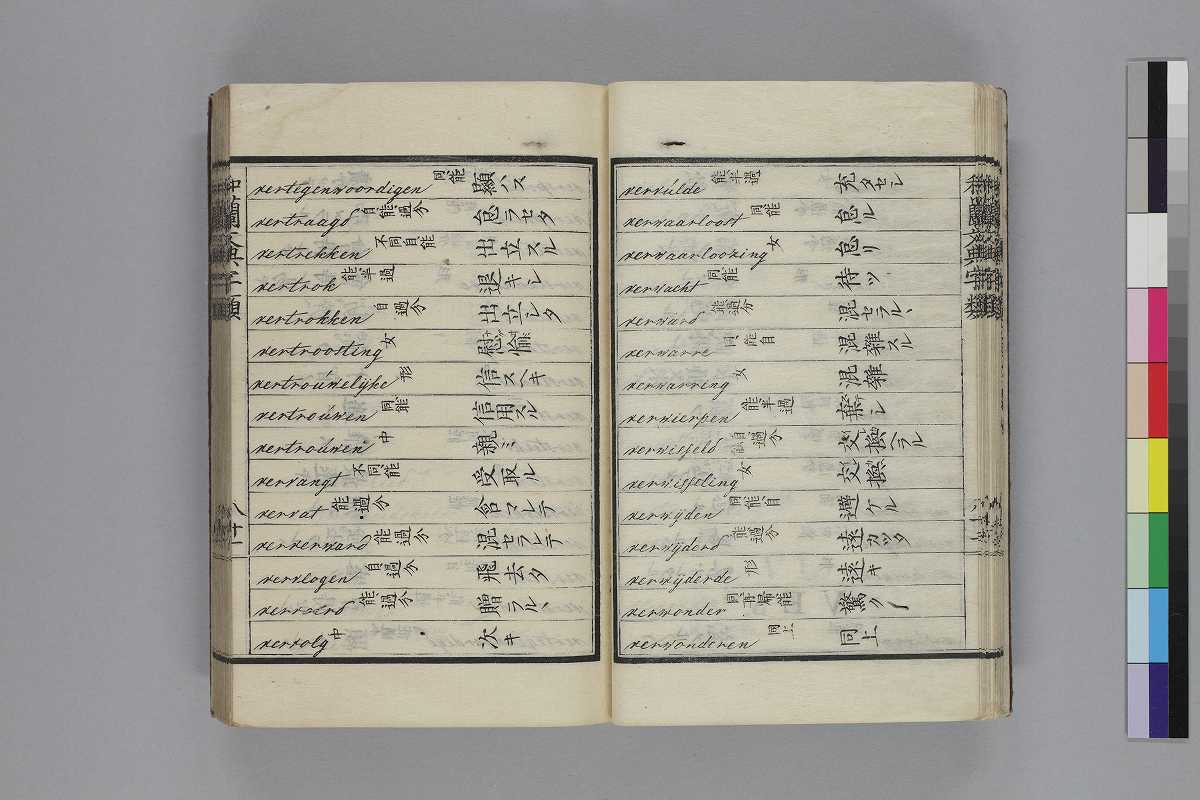 vertegenwoordigen 同能 顯ハス
vertraagd 自能過分 怠ラセタ
vertrekken 不同自能 出立スル
vertrok 能半過 退キシ
vertrokken 自過分 出立シタ
vertroosting 女 慰愉
vertroúwelijke 形 信スヘキ
vertroúwen 同能 信用スル
vertroúwen 中 親ミ
vervangt 不同能 受取ル
vervat 能過分 含マレテ
ververward 能過分 混セラレテ
vervlogen 自過分 飛去タ
能過分 贈ラルヽ
vervolg 中 次キ
vervúlde 能半過 充タセシ
verwaarloost 同能 怠ル
verwaarloozing 女 怠リ
verwacht 同能 待ツ
verward 能過分 混セラルヽ
verwarre 同能自 混雜スル
verwarring 女 混雜
verwierpen 能半過 棄シ
verwisseld 自能過分 交換ヘラル
verwisseling 女 交換
verwijden 同能自 避ケル
verwijderd 能過分 遠カッタ
verwijderde 形 遠キ
verwonder 同再歸能 驚ク
verwonderen 同上 同上